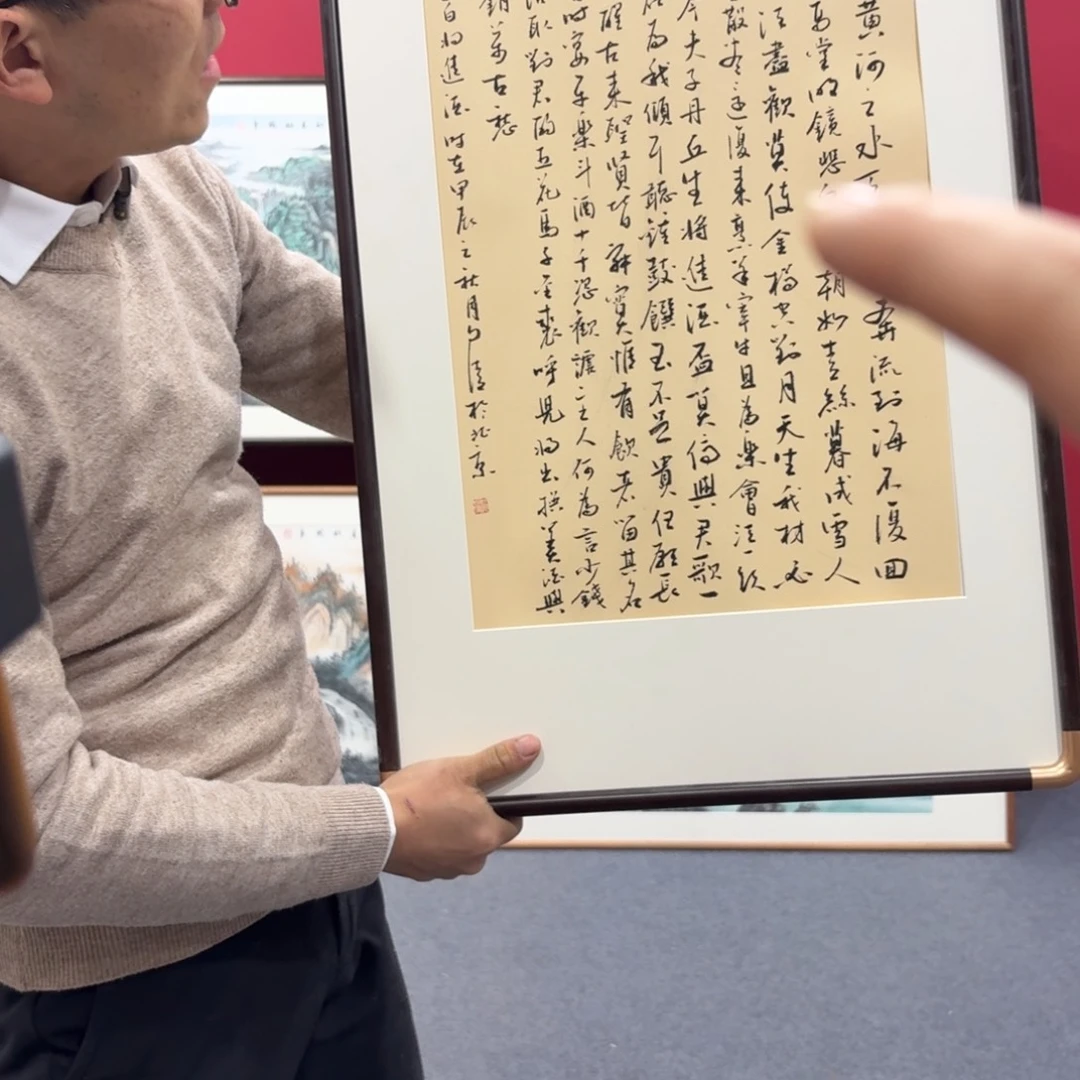 黄河之水 奔流到海不復回
高堂明鏡悲 朝如青絲暮成雪人
須盡歡莫使金樽空對月天生我材必
散盡還復來烹羊宰牛且為樂會須一飲
岑夫子丹丘生將進酒盃莫停與君歌一
為我傾耳聽鐘鼓饌玉不足貴但願長
醒古來聖賢皆寂寞惟有飲者留其名
時宴平樂斗酒十千恣歡謔主人何為言少錢
沽取對君酌五花馬千金裘呼兒將出換美酒與
銷萬古愁
白將進酒時在甲辰之秋月 於北京